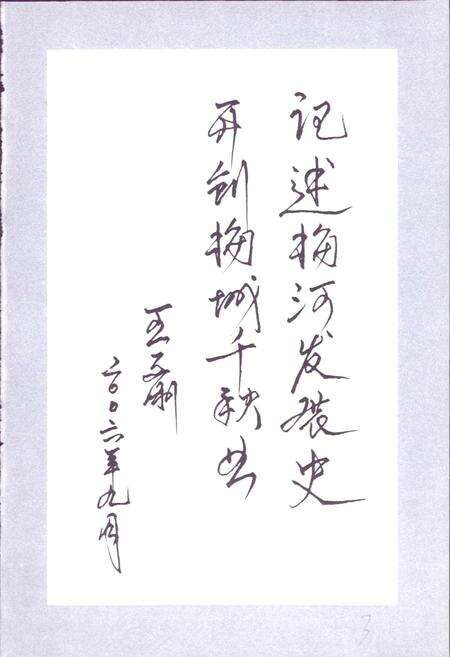 记述梅河发展史
开创梅城千秋业
王
二〇〇六年九月
3